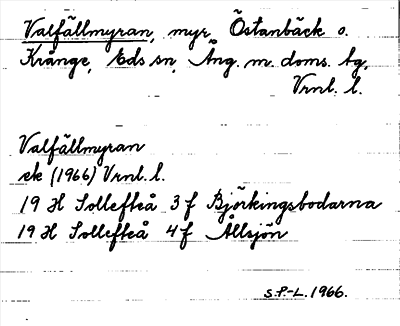 Valfällmyran, myr, Östanbäck o.
Krånge, Eds sn, Ång. m. doms. tg,
Vrnl. l.
Valfällmyran
ek (1966) Vrnl. l.
19 H Sollefteå 3 f Björkingsbodarna
19 H Sollefteå 4 f Ållsjön
S.P-L. 1966.